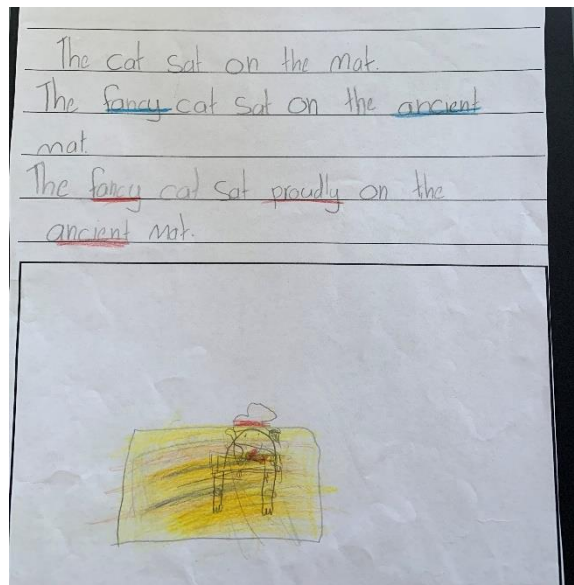 The cat sat on the mat.
The fancy cat sat on the ancient
mat.
The fancy cat sat proudly on the
ancient mat.